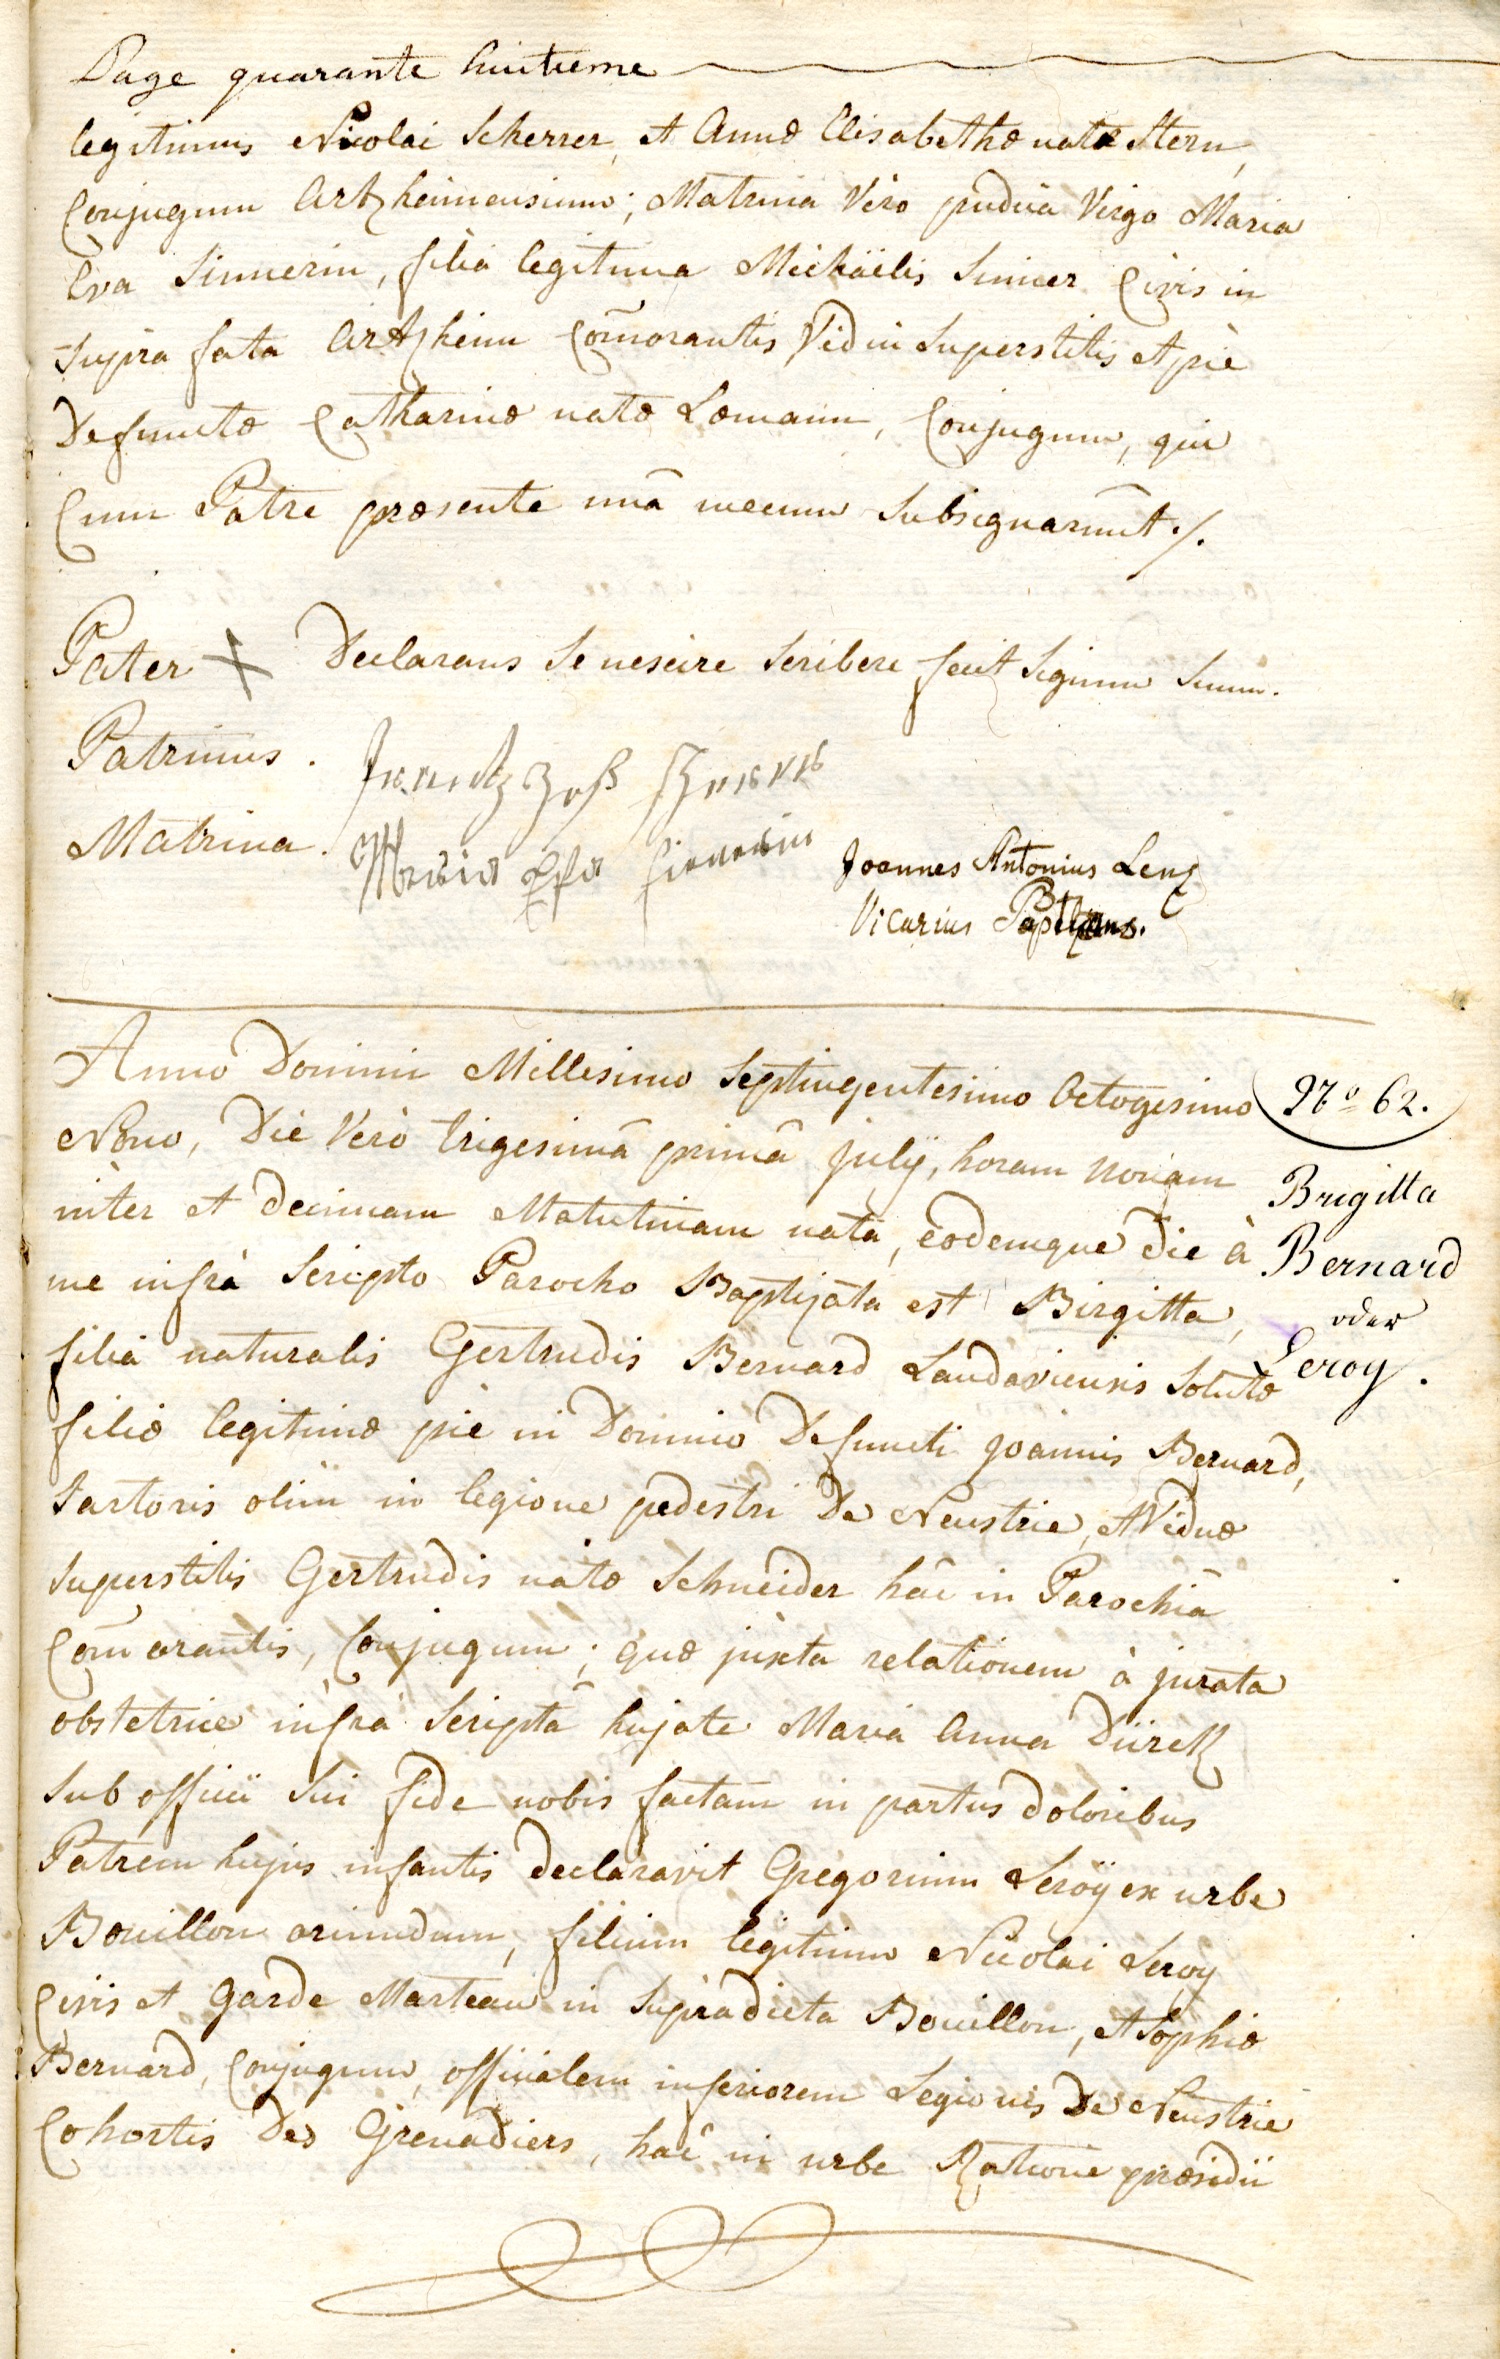 Page quarante huitieme
legitimus Nicolai Scherrer, et Annæ Elisabethæ natæ Stern,
Conjugum Artzheimensium; Matrina Vero pudica Virgo Maria
Eva Sinnerin, filia legitima Michäelis Sinner Civis in
supra fata Artzheim Com̄orantis Vidui Superstitis et piè
Defunctæ Catharinæ natæ Lomann, Conjugum, qui
Cum Patre præsente unâ mecum Subsignarunt ./.
Pater X Declarans Se nescire Scribere fecit Signum Suum.
Patrinus. Frantz
Matrina. Maria Efa sinnerin
Joannes Antonius Lenz
Vicarius
Anno Domini Millesimo Septingentesimo Octogesimo
Nº 62.
Nono, Die Verò trigesimâ primâ julÿ, horam nonam
inter et decimam Matutinam nata, eodemque die à
me infrà Scripto Parocho Baptizata est Birgitta,
Brigitta
Bernard
oder
Leroy.
filia naturalis Gertrudis Bernard Landaviensis Solutæ
filiæ legitimæ piè in Domino Defuncti Joannis Bernard,
Sartoris olim in legione pedestri De Neustrie, et Viduæ
Superstitis Gertrudis natæ Schneider hâc in Parochiâ
Com̄orantis, Conjugum; quæ juxta relationem à jurata
obstetrice infrà Scriptâ hujate Maria Anna Dürck
Sub officii Sui fide nobis factam in partus doloribus
Patrem hujus infantis declaravit Gregorium Leroÿ ex urbe
Bouillon oriundum, filium legitimum Nicolai Leroy
Civis et Garde Marteau in Supradicta Bouillon, et Sophiæ
Bernard, Conjugum, officialem inferiorem Legionis De Neustrie
Cohortis Des Grenadiers, hâc in urbe Ratione præsidii